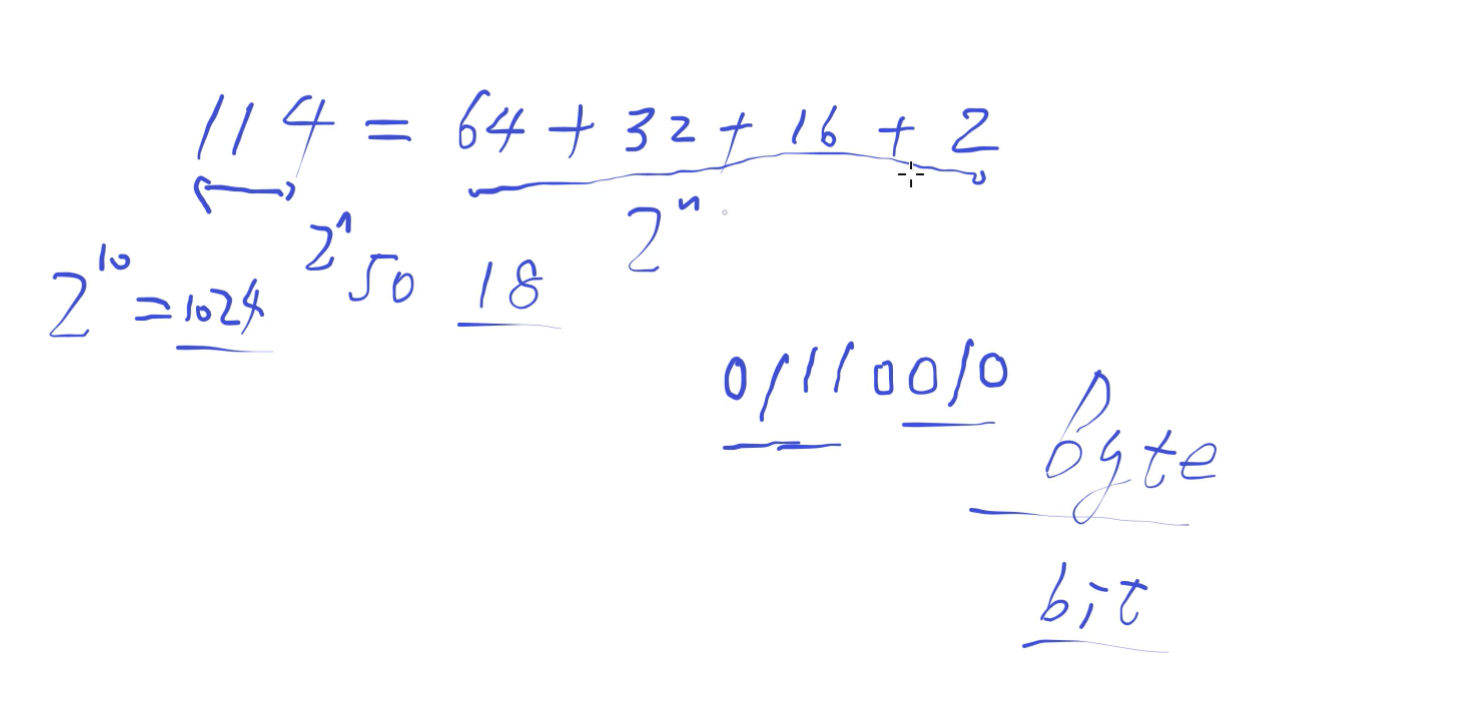 114 = 64 + 32 + 16 + 2
2^n
2^10 = 1024 50 18
01110010
Byte
bit